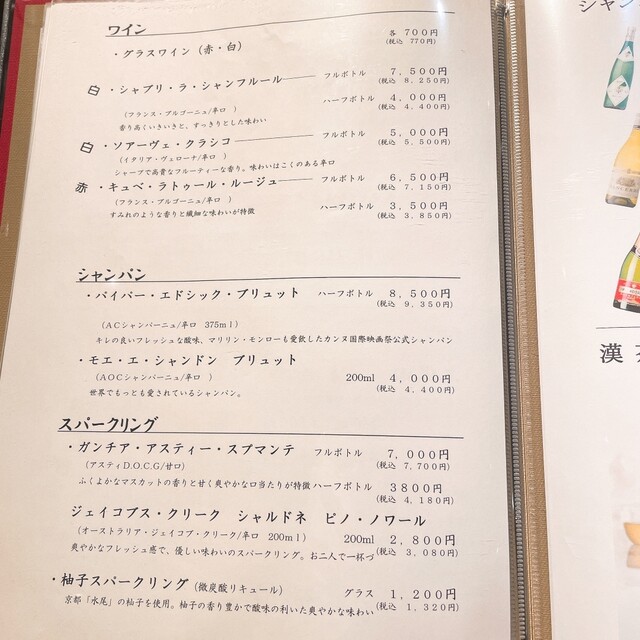 ワイン
・グラスワイン（赤・白） 各 700円
（税込 770円）
白 ・シャブリ・ラ・シャンフルール フルボトル 7,500円
（税込 8,250円）
（フランス・ブルゴーニュ/辛口 ） ハーフボトル 4,000円
（税込 4,400円）
香り高くいきいきと、すっきりとした味わい
白 ・ソアーヴェ・クラシコ フルボトル 5,000円
（税込 5,500円）
（イタリア・ヴェローナ/辛口 ）
シャープで高貴なフルーティーな香り。味わいはこくのある辛口
赤 ・キュベ・ラトゥール・ルージュ フルボトル 6,500円
（税込 7,150円）
（フランス・ブルゴーニュ/辛口 ） ハーフボトル 3,500円
（税込 3,850円）
すみれのような香りと繊細な味わいが特徴
シャンパン
・パイパー・エドシック・ブリュット ハーフボトル 8,500円
（税込 9,350円）
（ACシャンパーニュ/辛口 375ml）
キレの良いフレッシュな酸味、マリリン・モンローも愛飲したカンヌ国際映画祭公式シャンパン
・モエ・エ・シャンドン ブリュット
（AOCシャンパーニュ/辛口 ） 200ml 4,000円
（税込 4,400円）
世界でもっとも愛されているシャンパン。
スパークリング
・ガンチア・アスティー・スプマンテ フルボトル 7,000円
（税込 7,700円）
（アスティD.O.C.G/甘口）
ふくよかなマスカットの香りと甘く爽やかな口当たりが特徴 ハーフボトル 3800円
（税込 4,180円）
ジェイコブス・クリーク シャルドネ ピノ・ノワール
（オーストラリア・ジェイコブ・クリーク/辛口 200ml） 200ml 2,800円
（税込 3,080円）
爽やかなフレッシュ感で、優しい味わいのスパークリング。お二人で一杯づ
・柚子スパークリング（微炭酸リキュール） グラス 1,200円
（税込 1,320円）
京都「水尾」の柚子を使用。柚子の香り豊かで酸味の利いた爽やかな味わい
シャン
漢